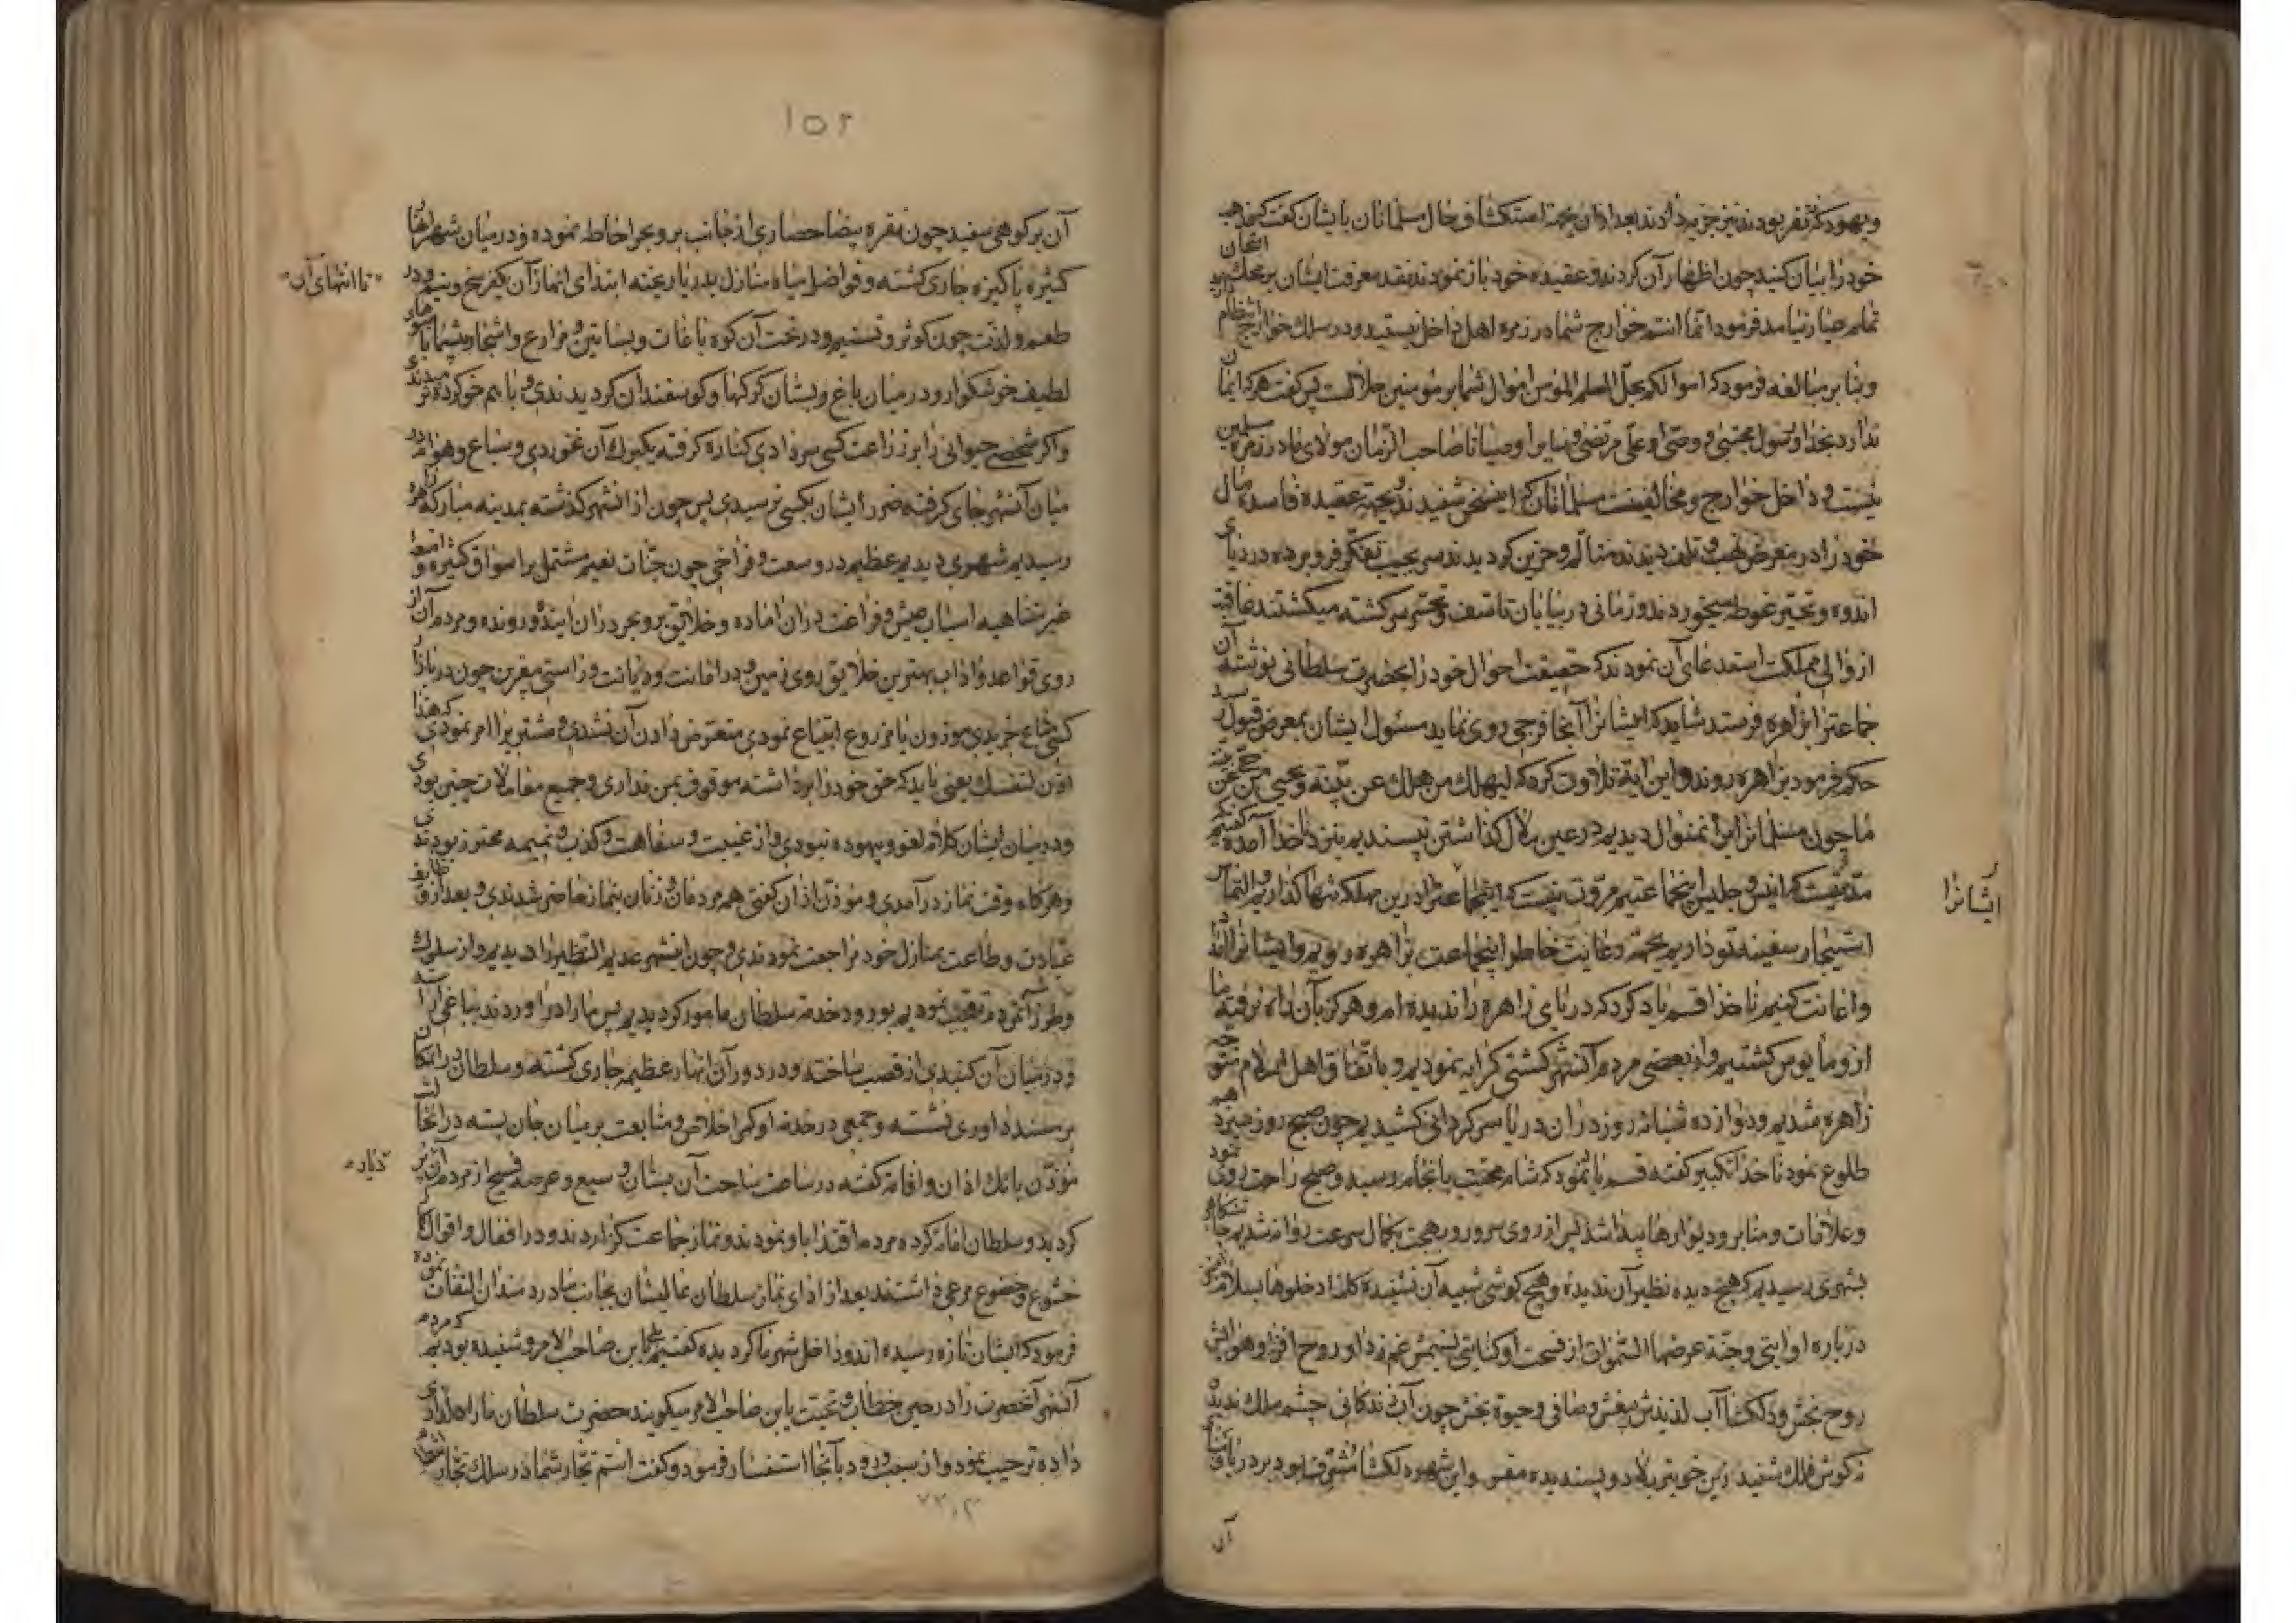 و یهود که نفر بودند نیز جزیه دادند بعد ازان بجهة استکشاف حال مسلمانان با یشان گفت که مذهب
خود را بیان کنید چون اظهار آن کردند و عقیده خود باز نمودند نقد معرفت ایشان بر محک امتحان
تمام عیار نیامد فرمود انما انتم خوارج شما در زمره اهل داخل نیستید و در سلک خوارج انتظام
و بنا بر مبالغه فرمود که اموالکم یحل للمسلم المؤمن اموال شما بر مؤمنین حلالست پس گفت هر که ایمان
ندارد بخدا و رسول مجتبی و وصی او علی مرتضی و سایر اوصیا تا صاحب الزمان مولای ما در زمره مسلمین
نیست و داخل خوارج و مخالفینست مسلمانان که این سخن شنیدند و بجهة عقیده فاسده مال
خود را در معرض نهب و تلف دیدند متألم و حزین گردیدند سر بجیب تفکر فرو برده در دریای
اندوه و تحیر غوطه میخوردند و زمانی در بیابان تاسف و تحسر سرگشته میگشتند عاقبة
از والی مملکت استدعای آن نمودند که حقیقت احوال خود را بحضرت سلطانی نوشته آن
جماعترا بزاهره فرستد شاید که ایشانرا آنجا فرجی روی نماید مسئول ایشان بمعرض قبول رسید
حکم فرمود بزاهره روند و این آیة تلاوت کرد که لیهلک من هلک عن بینة و یحیی من حی عن بینه
ما چون مسلمانرا برانمنوال دیدیم در عین ملال گذاشتن نپسندیدیم بنزد ناخدا آمده گفتیم که
مدتیست که انیس و جلیس اینجماعتیم مروت نیست که اینجماعترا درین مهلکه تنها گذاریم و التماس
ایشانرا
استیجار سفینه تو داریم بجهة رعایت خاطر اینجماعت بزاهره رویم و ایشانرا امداد
و اعانت کنیم ناخدا قسم یاد کرد که دریای زاهره را ندیده ام و هرگز بآن راه نرفته ما
ازو مأیوس گشتیم و از بعضی مردم آنشهر کشتی کرایه نمودیم و باتفاق اهل اسلام متوجه
زاهره شدیم و دوازده شبانه روز دران دریا سرگردانی کشیدیم چون صبح روز سیزدهم
طلوع نمود ناخدا تکبیر گفته قسم یاد نمود که شام محنت بانجام رسید و صبح راحت روی نمود
و علامات و منابر و دیوارها پیدا شد پس از روی سرور و بهجت بکمال سرعت روانه شدیم تا بگاه
بشهری رسیدیم که هیچ دیده نظیر آن ندیده و هیچ گوشی شبیه آن نشنیده کلمه ادخلوها بسلام آمنین
درباره او آیتی و جنة عرضها السموات از فسحت او کنایتی نسیمش غم زدا و روح افزا و هوایش
روح بخش و دلگشا آب لذیذش بیغش و صافی و حیوة بخش چون آب زندگانی چشم ملک ندید
نه گوش فلک شنید زین خوبتر بلاد و پسندیده مقر و این شهر دلگشا مشرف بود بر دریا و بنای
آن
۱۵۲
آن بر کوهی سفید چون نقره بیضا حصاری از جانب بر و بحر احاطه نموده و در میان شهر انهار
کثیره پاکیزه جاری گشته و فواضل میاه منازل بدریا ریخته ابتدای انهار آن یکفرسخ و نیم و در
تا انتهای آن
طعم و لذت چون کوثر و تسنیم و در تحت آن کوه باغات و بساتین و مزارع و اشجار بیشمار با میوهای
لطیف خوشگوار و در میان باغ و بستان گرگها و گوسفندان گردیدندی و با هم خو کرده نرمیدندی
و اگر شخصی حیوانی را بزراعت کسی سر دادی کناره گرفته یکبرگ آن نخوردی و سباع و هوام در
میان آنشهر جای گرفته ضرر ایشان بکسی نرسیدی پس چون از انشهر گذشته بمدینه مبارکه زاهره
رسیدیم شهری دیدیم عظیم در وسعت و فراخی چون جنات نعیم مشتمل بر اسواق کثیره و امتعهٔ
غیر متناهیه اسباب عیش و فراغت دران آماده و خلایق بر و بحر دران آینده و رونده و مردم آن از
روی قواعد و آداب بهترین خلایق روی زمین و در امانت و دیانت و راستی بیقرین چون در بازار
کسی متاع خریدی موزون یا مزروع ابتیاع نمودی متعرض دادن آن نشدی و مشتریرا امر نمودی که هذا
اوزن لنفسک یعنی باید که حق خود را برداشته موقوف بمن نداری و جمیع معاملات چنین بودی
و در میان ایشان کلام لغو و بیهوده نبودی و از غیبت و سفاهت و کذب و نمیمه محترز بودندی
و هرگاه وقت نماز در آمدی و مؤذن اذان گفتی همه مردمان و زنان بنماز حاضر شدندی و بعد از وظایف
عبادت و طاعت بمنازل خود مراجعت نمودندی و چون اینشهر عدیم النظیر را دیدیم و از سلوک
و طرز آنمردم تعجب نمودیم بورود خدمة سلطان مامور گردیدیم پس ما را در آوردند بباغی آراسته
و در میان آن گنبدی از قصب ساخته و در دور آن انهار عظیمه جاری گشته و سلطان در آن مکان
بر مسند داوری نشسته و جمعی در خدمة او کمر اخلاص و متابعت بر میان جان بسته در انحال
مؤذن بانک اذان و اقامة گفته در ساعت ساحت آن بستان وسیع و عرصه فسیح از مردم آن پر
دیار
گردید و سلطان امامة کرده مردم اقتدا باو نمودند و نماز جماعت گزاردند و در افعال و اقوال کمال
خشوع و خضوع مرعی داشتند بعد از ادای نماز سلطان عالیشان بجانب ما دردمندان التفات نموده
فرمود که ایشان تازه رسیده اند و داخل شهر ما گردیده گفتیم بلی یا بن صاحب الامر و شنیده بودیم که مردم
آنشهر آنحضرت را در حین خطاب و تحیت یا بن صاحب الامر میگویند حضرت سلطان ما را دلداری
داده ترحیب نمود و از سبب ورود بآنجا استفسار فرمود و گفت انتم تجار شما در سلک تجار انتظام